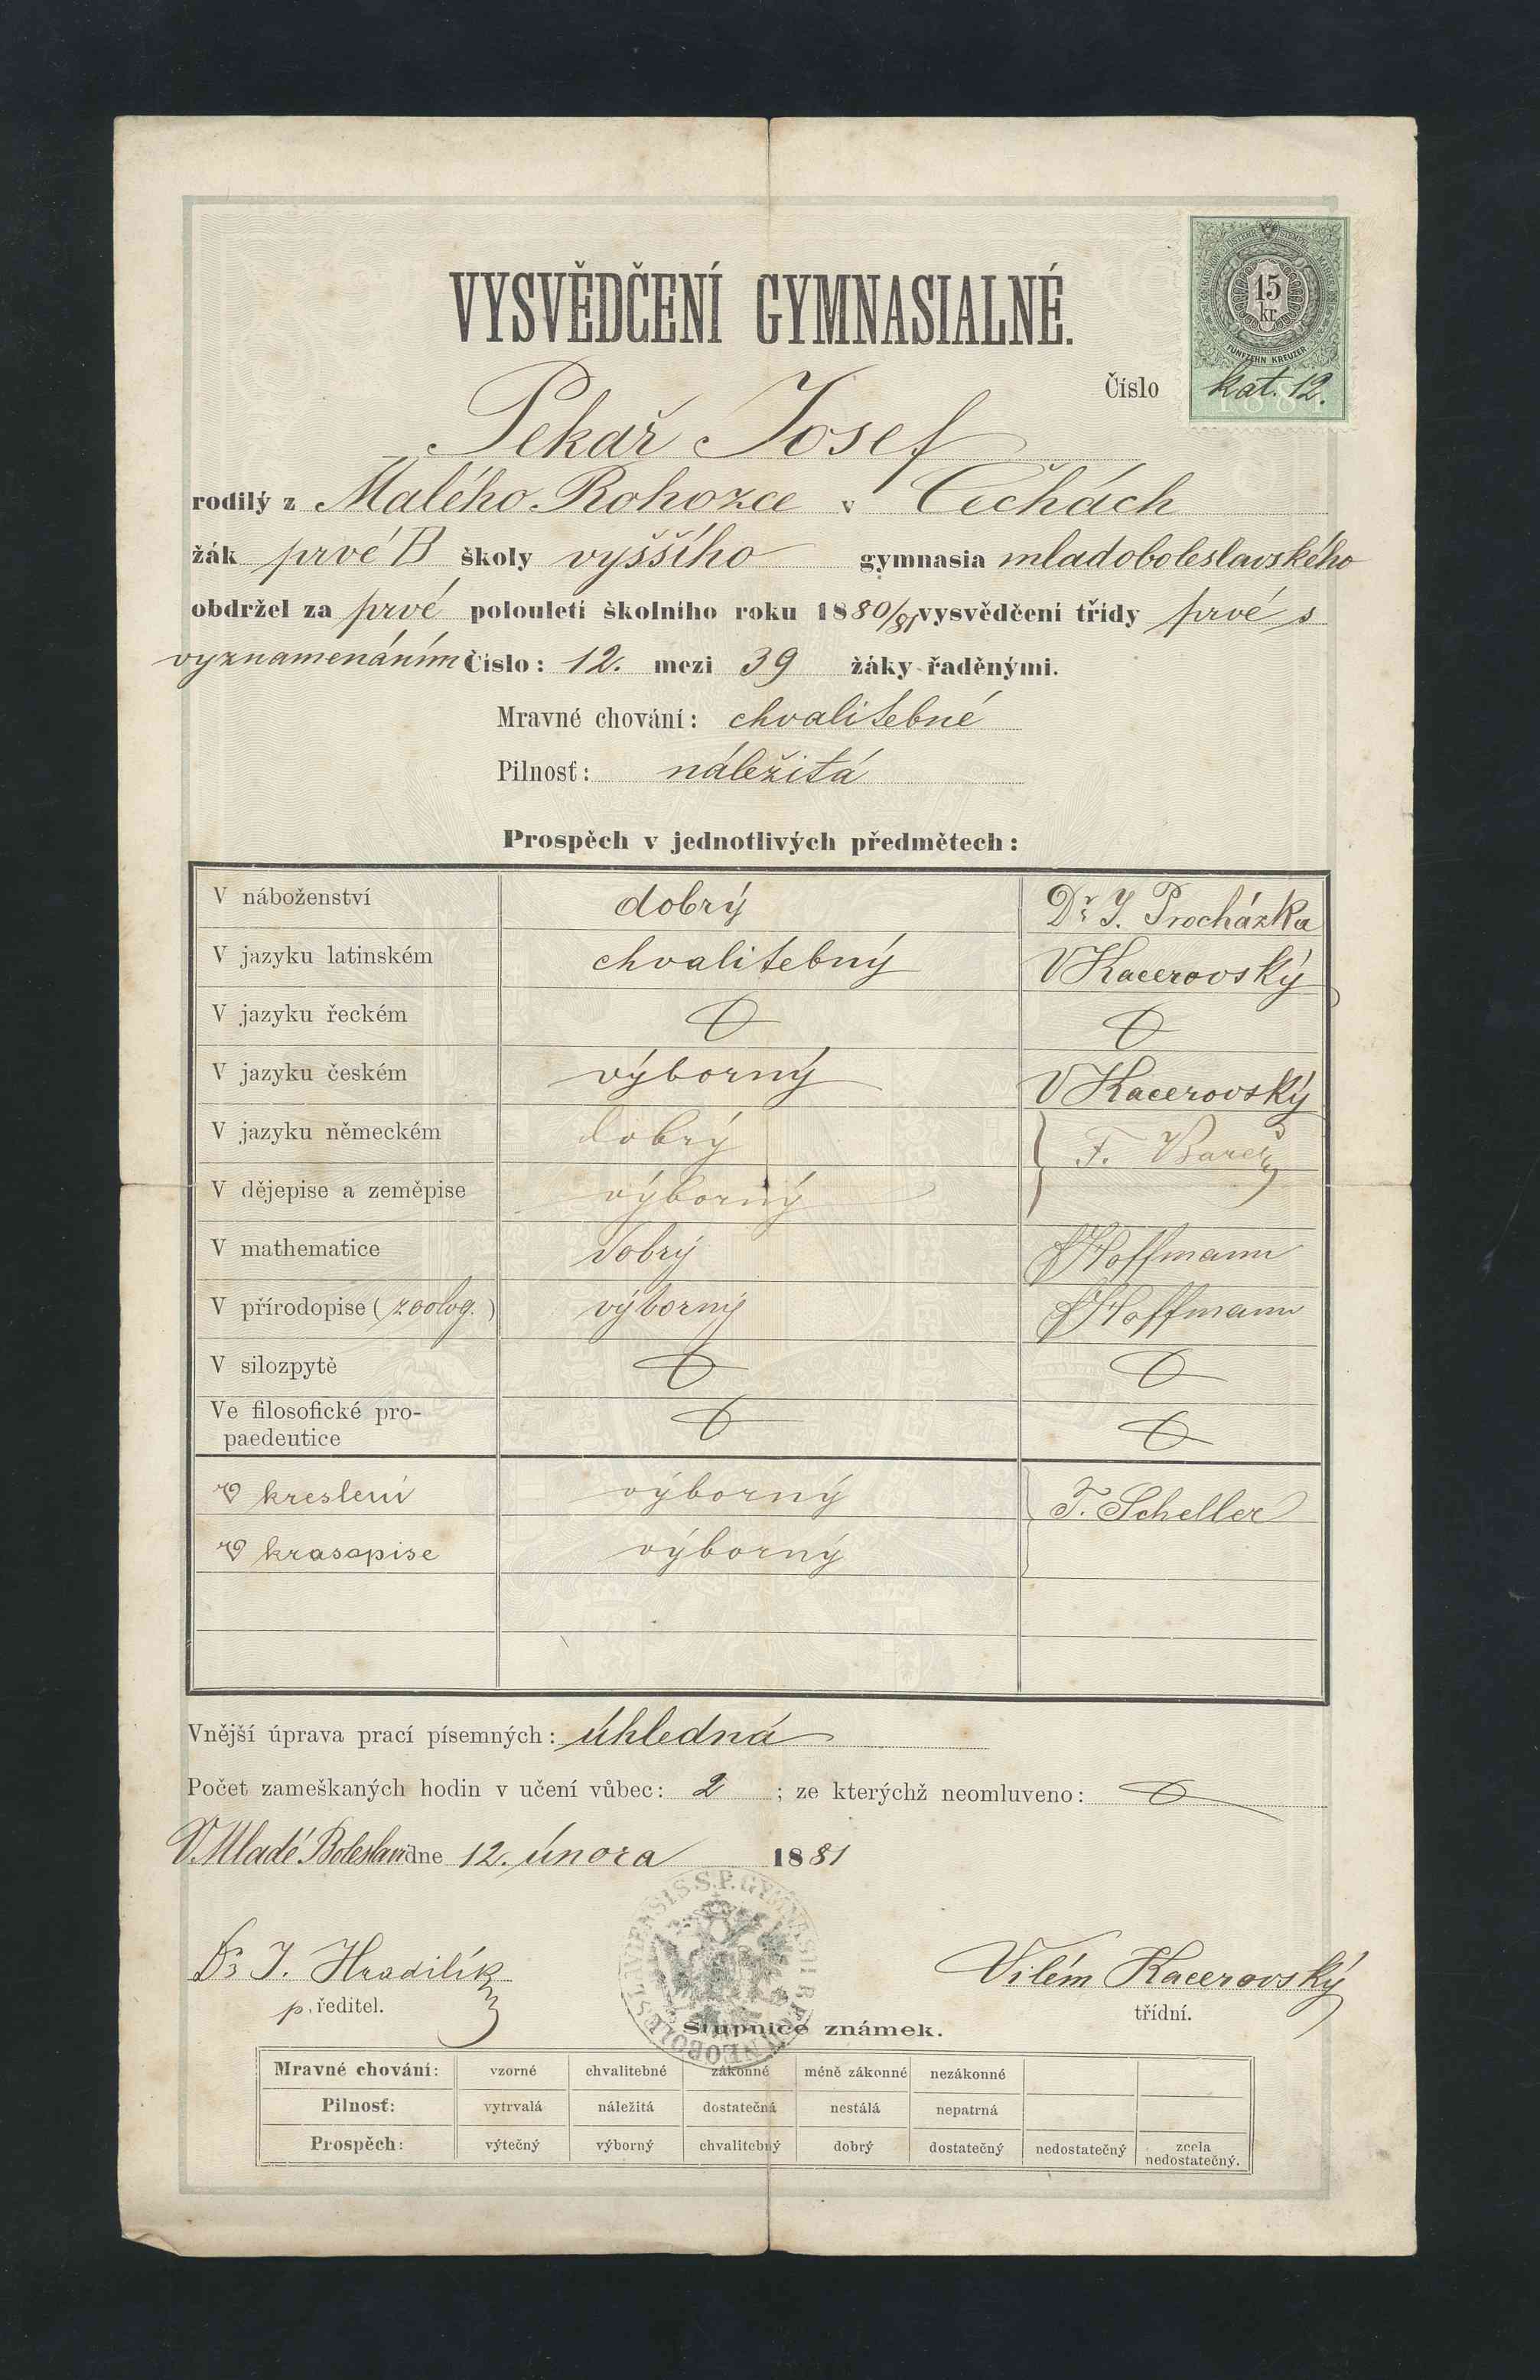 VYSVĚDČENÍ GYMNASIALNÉ.
15
kr.
FÜNFZEHN KREUZER
1881
Číslo kat. 12.
Pekař Josef
rodilý z Malého Rohozce v Čechách
žák prvé B školy vyššího gymnasia mladoboleslavského
obdržel za prvé polouletí školního roku 1880/81 vysvědčení třídy prvé s
vyznamenáním Číslo: 12. mezi 39 žáky řaděnými.
Mravné chování: chvalitebné
Pilnosť: náležitá
Prospěch v jednotlivých předmětech:
V náboženství dobrý Dr J. Procházka
V jazyku latinském chvalitebný VKacerovský
V jazyku řeckém
V jazyku českém výborný VKacerovský
V jazyku německém dobrý F. Bareš
V dějepise a zeměpise výborný
V mathematice dobrý Hoffmann
V přírodopise (zoolog.) výborný Hoffmann
V silozpytě
Ve filosofické pro-
paedeutice
V kreslení výborný F. Scheller
V krasopise výborný
Vnější úprava prací písemných: úhledná
Počet zameškaných hodin v učení vůbec: 2 ; ze kterýchž neomluveno:
V Mladé Boleslavi dne 12. února 1881
Dr J. Hradilík Vilém Kacerovský
p. ředitel. třídní.
Stupnice známek.
Mravné chování: vzorné chvalitebné zákonné méně zákonné nezákonné
Pilnosť: vytrvalá náležitá dostatečná nestálá nepatrná
Prospěch: výtečný výborný chvalitebný dobrý dostatečný nedostatečný zcela
nedostatečný.